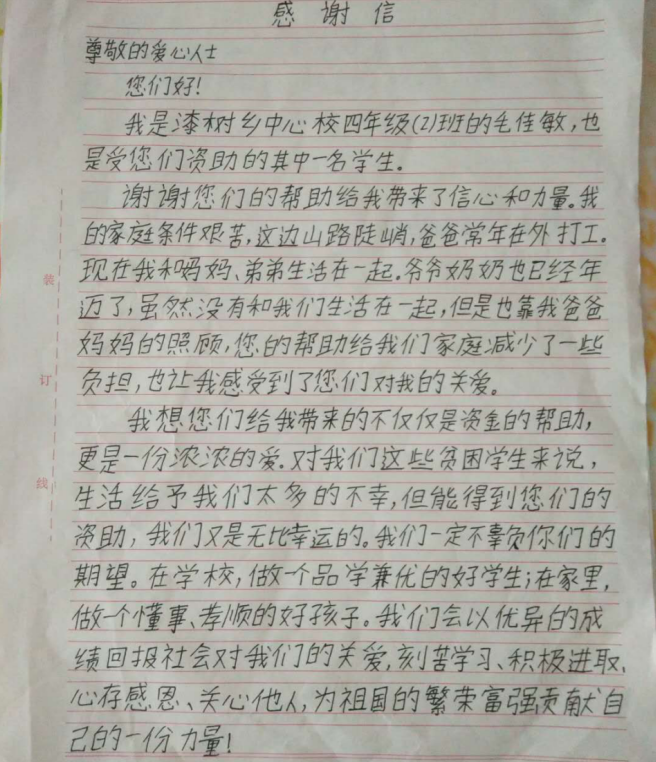 感谢信
尊敬的爱心人士
您们好!
我是漆树乡中心校四年级(2)班的毛佳敏,也
是受您们资助的其中一名学生.
谢谢您们的帮助给我带来了信心和力量。我
的家庭条件艰苦,这边山路陡峭,爸爸常年在外打工.
现在我和妈妈、弟弟生活在一起.爷爷奶奶也已经年
迈了,虽然没有和我们生活在一起,但是也靠我爸爸
妈妈的照顾,您的帮助给我们家庭减少了一些
负担,也让我感受到了您们对我的关爱。
我想您们给我带来的不仅仅是资金的帮助,
更是一份浓浓的爱.对我们这些贫困学生来说,
生活给予我们太多的不幸,但能得到您们的
资助,我们又是无比幸运的。我们一定不辜负你们的
期望。在学校,做一个品学兼优的好学生;在家里,
做一个懂事、孝顺的好孩子。我们会以优异的成
绩回报社会对我们的关爱,刻苦学习、积极进取、
心存感恩、关心他人,为祖国的繁荣富强贡献自
己的一份力量!
装
订
线